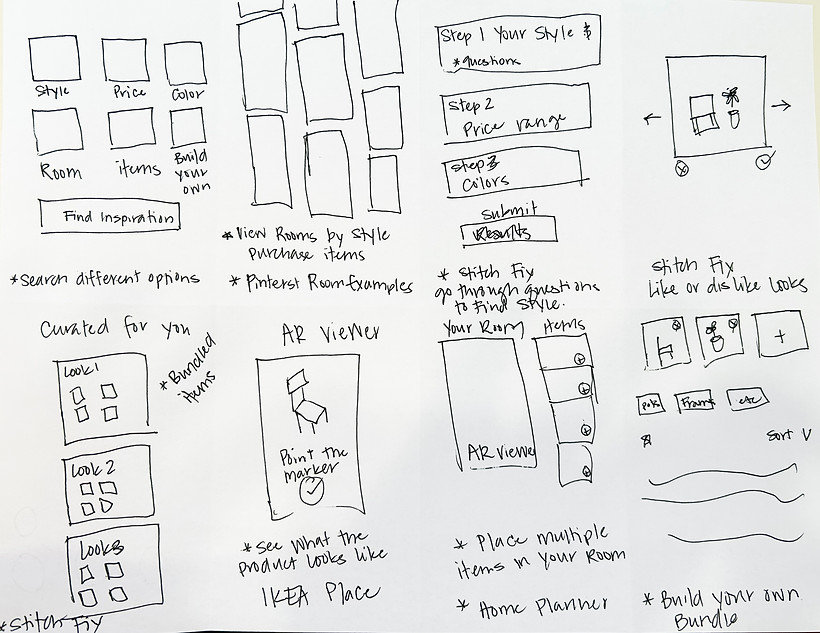 Style
Price
Color
Room
items
Build
your
own
Find Inspiration
*Search different options
*View Rooms by Style
purchase items
* Pinterst Room Examples
Step 1 Your Style
*questions
Step 2
Price range
Step 3
Colors
Submit
Results
* Stitch Fix
go through questions
to Find Style.
Stitch Fix
Like or dislike Looks
Curated for you
Look 1
*Bundled
items
Look 2
Look 3
*Stitch Fix
AR Viewer
Point the
marker
*see what the
product looks like
IKEA Place
Your Room
Items
AR viewer
* Place multiple
items in your Room
* Home Planner
+
Frams
etc
Sort
* Build your own
Bundle